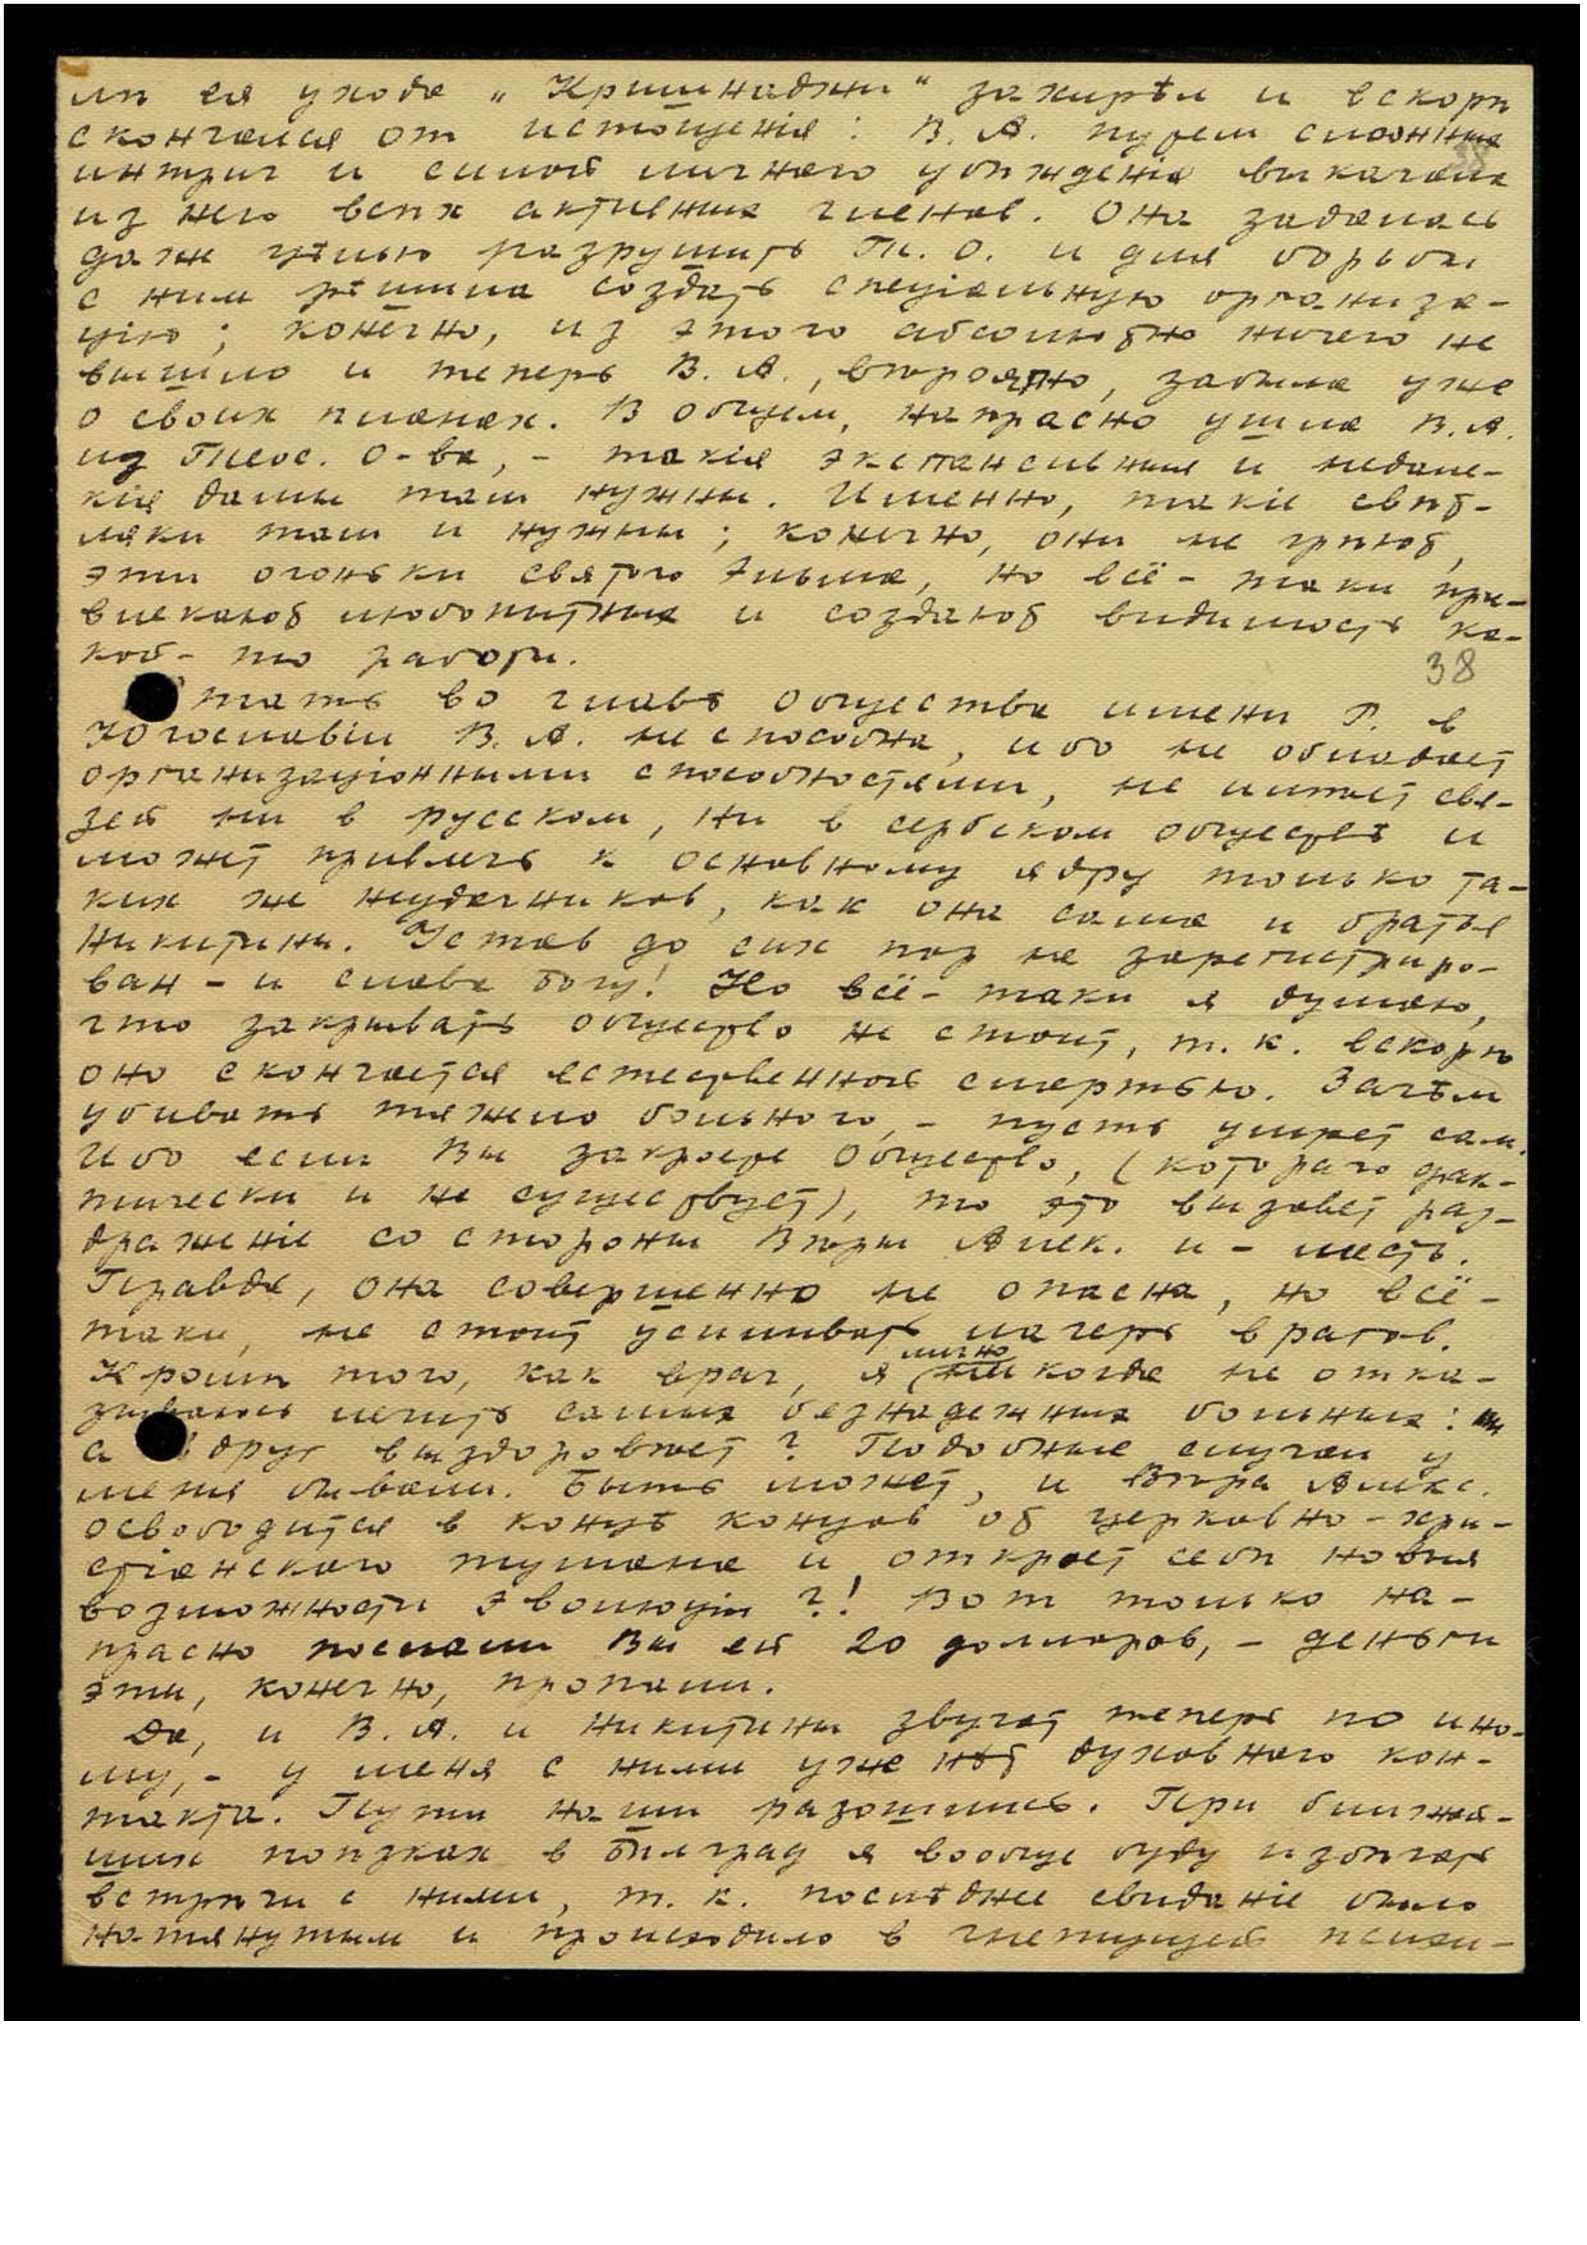 лѣ ея ухода „Кришнаджи" захирѣл и вскорѣ
скончался от истощенія: В. А. путем сложных
интриг и силой личнаго убѣжденія выкачала
из него всѣх активных членов. Она задалась
даже цѣлью разрушить Т. О. и для борьбы
с ним рѣшила создать спеціальную организа-
цію; конечно, из этого абсолютно ничего не
вышло и теперь В. А., вѣроятно, забыла уже
о своих планах. В общем, напрасно ушла В. А.
из Теос. О-ва, - такія экспансивныя и недале-
кія дамы там нужны. Именно, такіе свѣт-
ляки там и нужны; конечно, они не грѣют,
эти огоньки святого Эльма, но всё-таки при-
влекают любопытных и создают видимость ка-
кой-то работы.
38
Стать во главѣ Общества имени Р. в
Югославіи В. А. не способна, ибо не обладает
организаціонными способностями, не имѣет свя-
зей ни в русском, ни в сербском обществѣ и
может привлечь к основному ядру только та-
ких же неудачников, как она сама и братья
Никитины. Устав до сих пор не зарегистриро-
ван - и слава Богу! Но всё-таки я думаю,
что закрывать общество не стоит, т. к. вскорѣ
оно скончается естественной смертью. Зачѣм
убивать тяжело больного, - пусть умрет сам.
Ибо если Вы закроете Общество, (котораго фак-
тически и не существует), то это вызовет раз-
драженіе со стороны Вѣры Алек. и - месть.
Правда, она совершенно не опасна, но всё-
таки, не стоит усиливать лагерь врагов.
Кромѣ того, как врач, я лично никогда не отка-
зываюсь лечить самых безнадежных больных:
а вдруг выздоровѣет? Подобные случаи у
меня бывали. Быть может, и Вѣра Алекс.
освободится в концѣ концов от церковно-хри-
стіанского тумана и откроет себѣ новыя
возможности эволюціи?! Вот только на-
прасно послали Вы ей 20 долларов, - деньги
эти, конечно, пропали.
Да, и В. А. и Никитины звучат теперь по ино-
му, - у меня с ними уже нѣт духовного кон-
такта. Пути наши разошлись. При ближай-
ших поѣздках в Бѣлград я вообще буду избѣгать
встрѣчи с ними, т. к. послѣднее свиданіе было
натянутым и происходило в гнетущей психи-